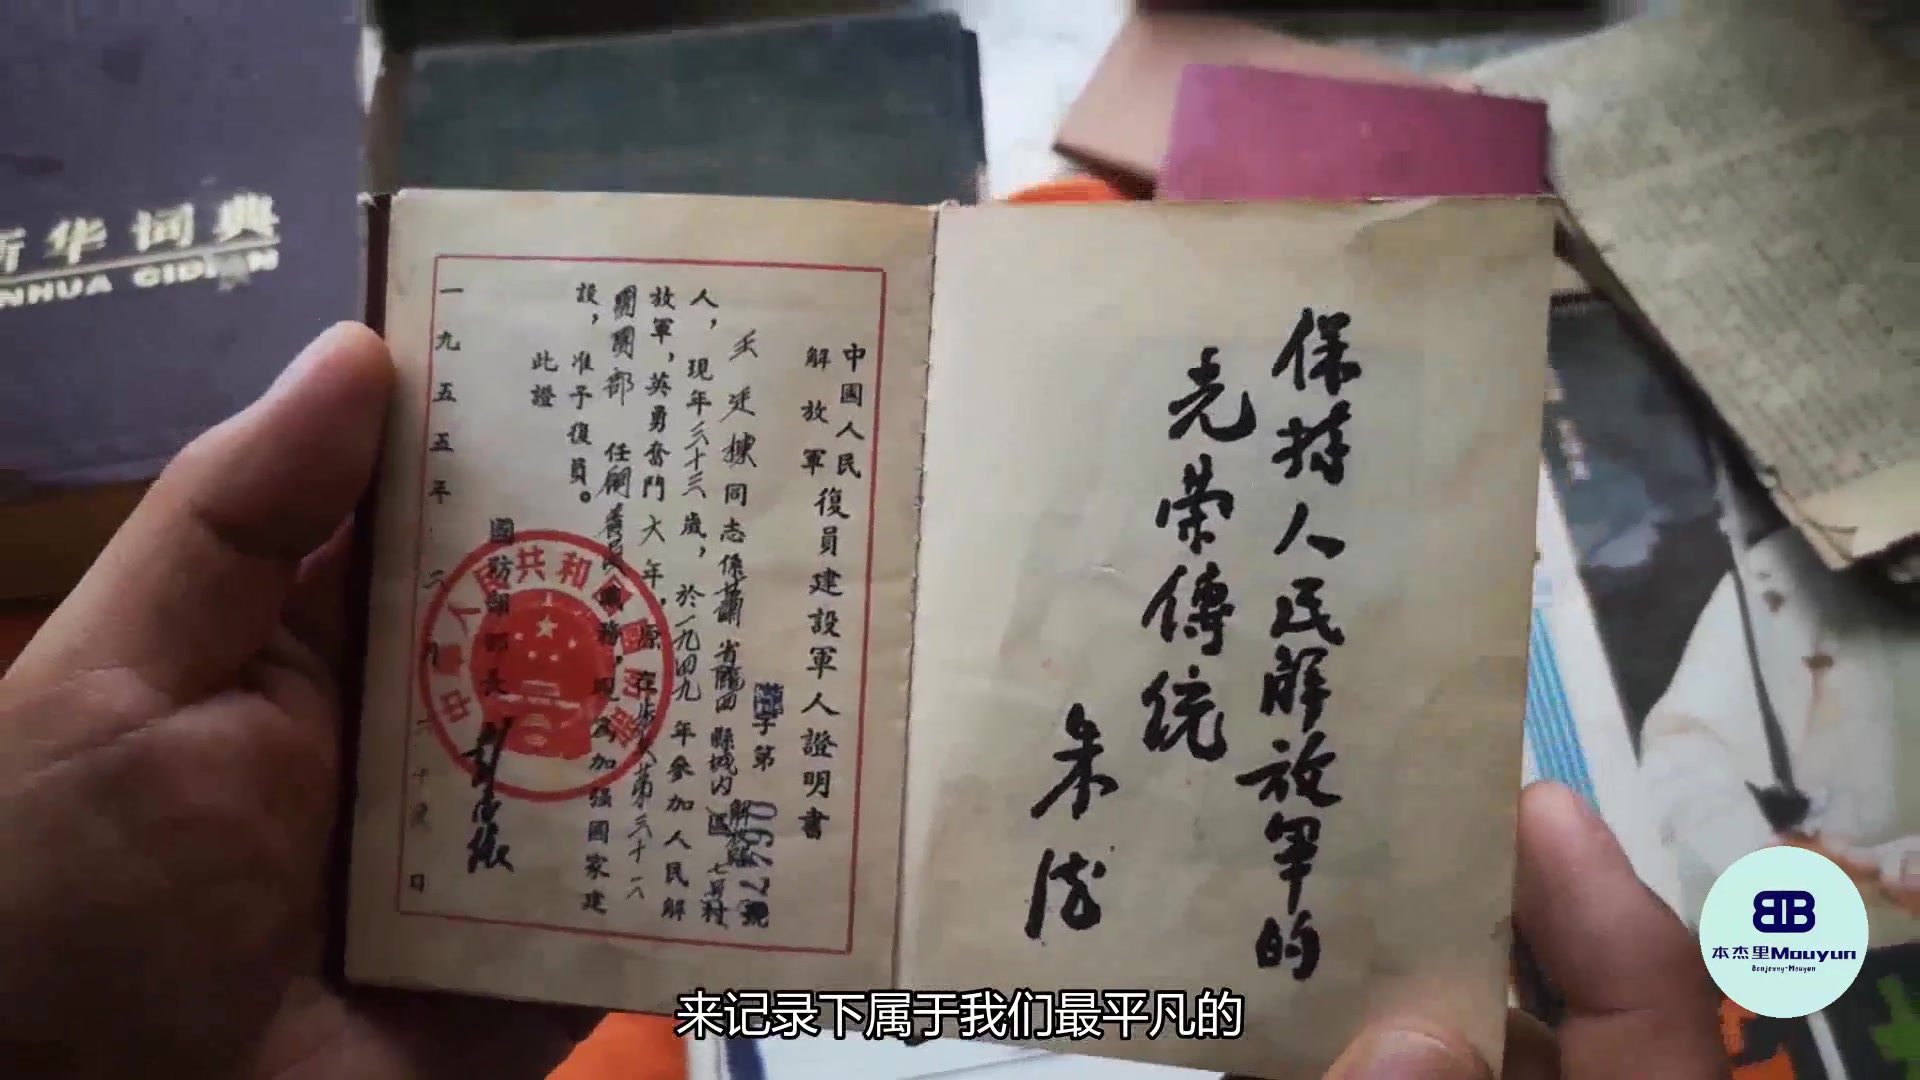 新华词典
XINHUA CIDIAN
保持人民解放軍的
光荣傳统
朱德
中國人民
解放軍
復員建設軍人證明書
字第067460號
同志係甘肅省隴西縣城内區七号村
人，現年三十三歲，於一九四九年參加人民解
放軍，英勇奮鬥六年，原在步兵第三十一
團團部任
職務，現為加强國家建
設，准予復員。
此證
國防部部長
彭德懷
一九五五年
中華人民共和國國防部
来记录下属于我们最平凡的
本杰里Mouyun
Benjenny-Mouyun